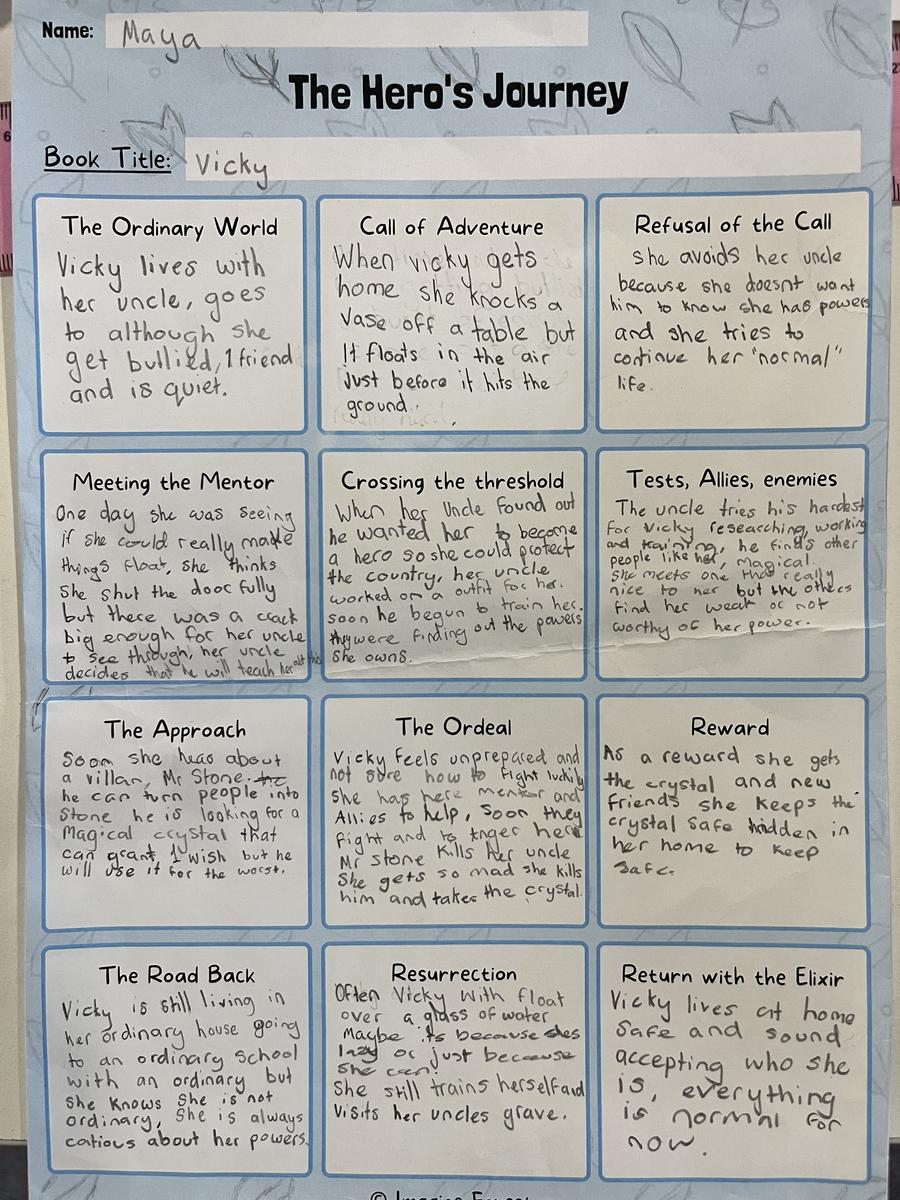 Name: Maya
The Hero's Journey
Book Title: Vicky
The Ordinary World
Vicky lives with
her uncle, goes
to although she
get bullied, 1 friend
and is quiet.
Call of Adventure
When vicky gets
home she knocks a
vase off a table but
It floats in the air
Just before it hits the
ground.
Refusal of the Call
she avoids her uncle
because she doesnt want
him to know she has powers
and she tries to
continue her "normal"
life.
Meeting the Mentor
One day she was seeing
if she could really made
things float, she thinks
she shut the door fully
but there was a crack
big enough for her uncle
to see through, her uncle
decides that he will teach her
Crossing the threshold
When her Uncle found out
he wanted her to become
a hero so she could protect
the country, her uncle
worked on a outfit for her.
soon he begun to train her.
they were finding out the powers
she owns.
Tests, Allies, enemies
The uncle tries his hardest
For Vicky researching, working
and training, he finds other
people like her, magical.
She meets one that really
nice to her but the others
find her weak or not
worthy of her power.
The Approach
Soon she hears about
a villan, Mr Stone.
he can turn people into
Stone he is looking for a
Magical crystal that
can grant 1 wish but he
will use it for the worst.
The Ordeal
Vicky feels unprepared and
not sure how to fight luckily
she has here mentor and
Allies to help, Soon they
fight and to anger here
Mr stone kills her uncle
She gets so mad she kills
him and takes the crystal.
Reward
As a reward she gets
the crystal and new
friends she keeps the
crystal safe hidden in
her home to keep
safe.
The Road Back
Vicky is still living in
her ordinary house going
to an ordinary school
with an ordinary but
she knows she is not
ordinary, She is always
catious about her powers.
Resurrection
Often Vicky with float
over a glass of water
Maybe its because shes
lazy or just because
she can!
She still trains herself and
visits her uncles grave.
Return with the Elixir
Vicky lives at home
safe and sound
accepting who she
is, everything
is normal for
now.